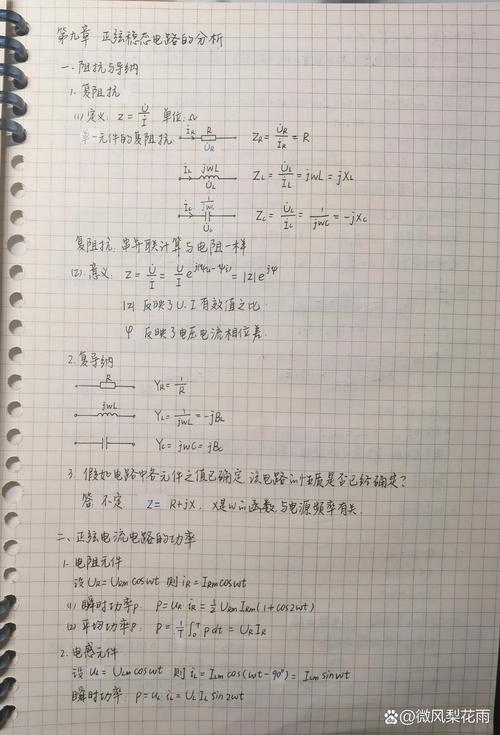 第九章 正弦稳态电路的分析
一.阻抗与导纳
1.复阻抗
(1)定义: Z = U̇/İ 单位:Ω
单一元件的复阻抗: İR R U̇R ZR = U̇R/İR = R
İL jwL U̇L ZL = U̇L/İL = jwL = jXL
İC 1/jwC U̇C ZC = U̇C/İC = 1/jwC = -jXC
复阻抗:串并联计算与电阻一样
(2)意义: Z = U̇/İ = U/I e^j(ψu-ψi) = |Z|e^jφ
|Z| 反映了U.I有效值之比
φ 反映了电压电流相位差.
2.复导纳
R YR = 1/R
jwL YL = 1/jwL = -jBL
YC = jwC = jBC
3. 假如电路中各元件之值已确定,该电路的性质是否已经确定?
答 不定 Z = R+jX, X是w的函数,与电源频率有关.
二、正弦电流电路的功率
1.电阻元件
设 UR = URm coswt 则 iR = IRm coswt
(1) 瞬时功率P: P = UR iR = 1/2 URm IRm (1+cos2wt)
(2) 平均功率P: P = 1/T ∫₀ᵀ P dt = UR IR
2.电感元件
设 UL = ULm coswt 则 iL = ILm cos(wt-90°) = ILm sinwt
瞬时功率 P = UL iL = UL IL sin2wt
Bai百科 @微风梨花雨